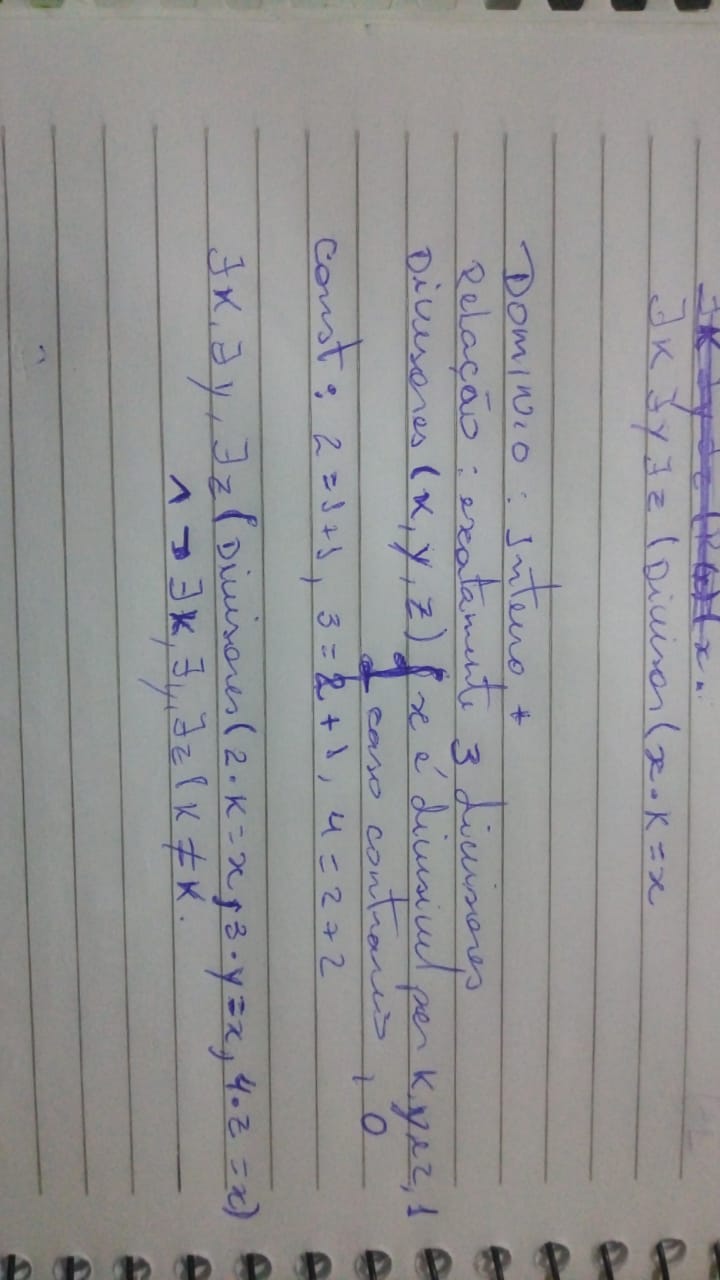 ∃k ∃y ∃z (Divisor (x·k=x
Domínio: Inteiro +
Relação: exatamente 3 divisores
Divisores (k, y, z) { x é divisível por k, y e z, 1
caso contrario, 0
Const: 2=1+1, 3=2+1, 4=2+2
∃k, ∃y, ∃z (Divisores (2·k=x, 3·y=x, 4·z=x)
∧ ¬∃k, ∃y, ∃z (k≠k.